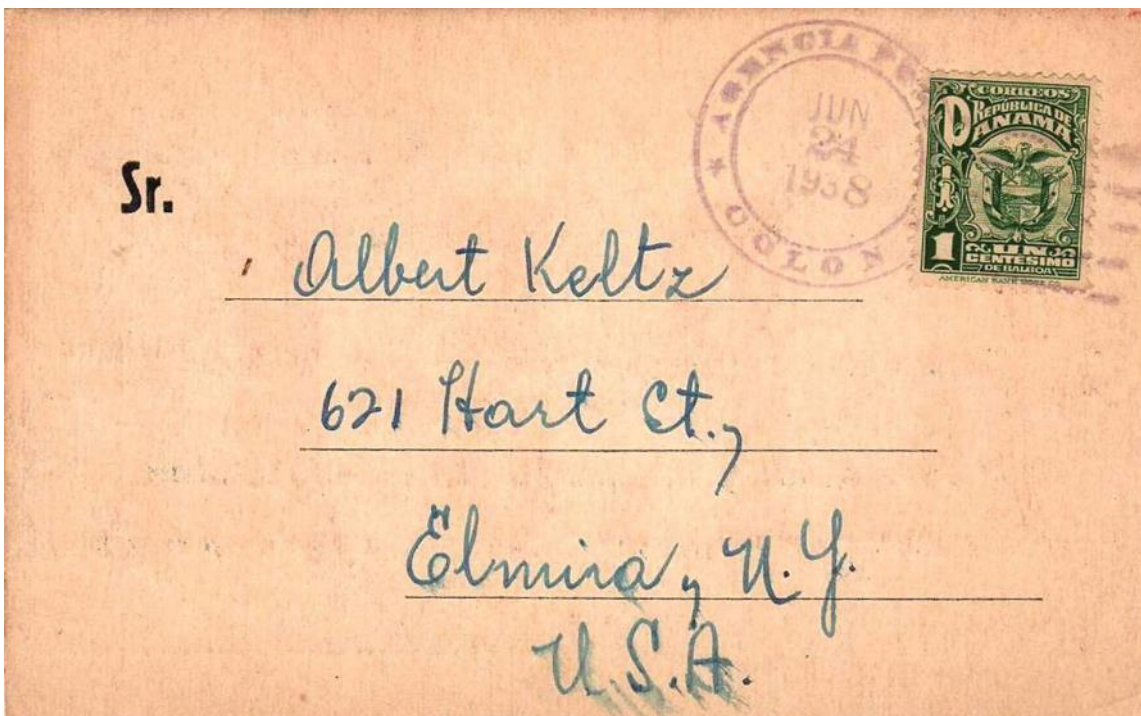 AGENCIA
JUN
24
1938
COLON
CORREOS
REPÚBLICA DE
PANAMÁ
1
UN
CENTÉSIMO
DE BALBOA
AMERICAN BANK NOTE CO.
Sr.
Albert Keltz
621 Hart St.,
Elmira, N.Y.
U.S.A.